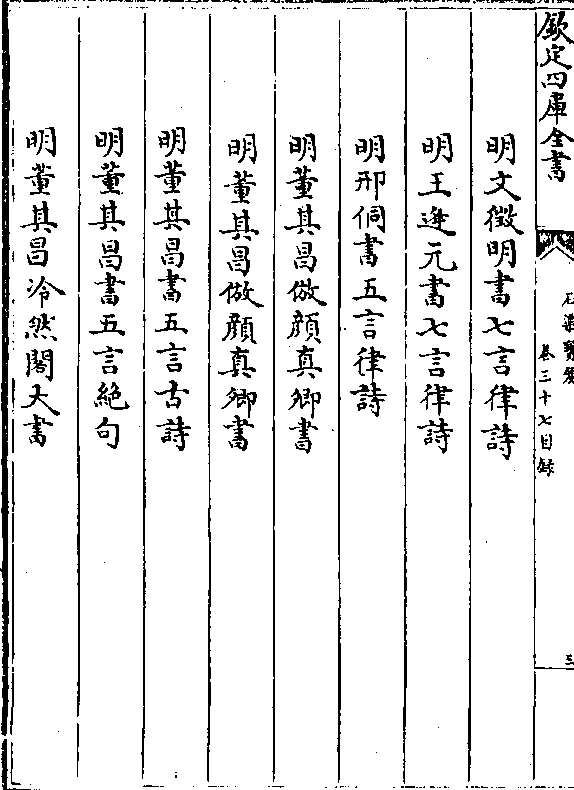 欽定四庫全書
石渠寳笈
卷三十七目録
三
明文徵明書七言律詩
明王逢元書七言律詩
明邢侗書五言律詩
明董其昌倣顔真卿書
明董其昌倣顔真卿書
明董其昌書五言古詩
明董其昌書五言絶句
明董其昌泠然閣大書